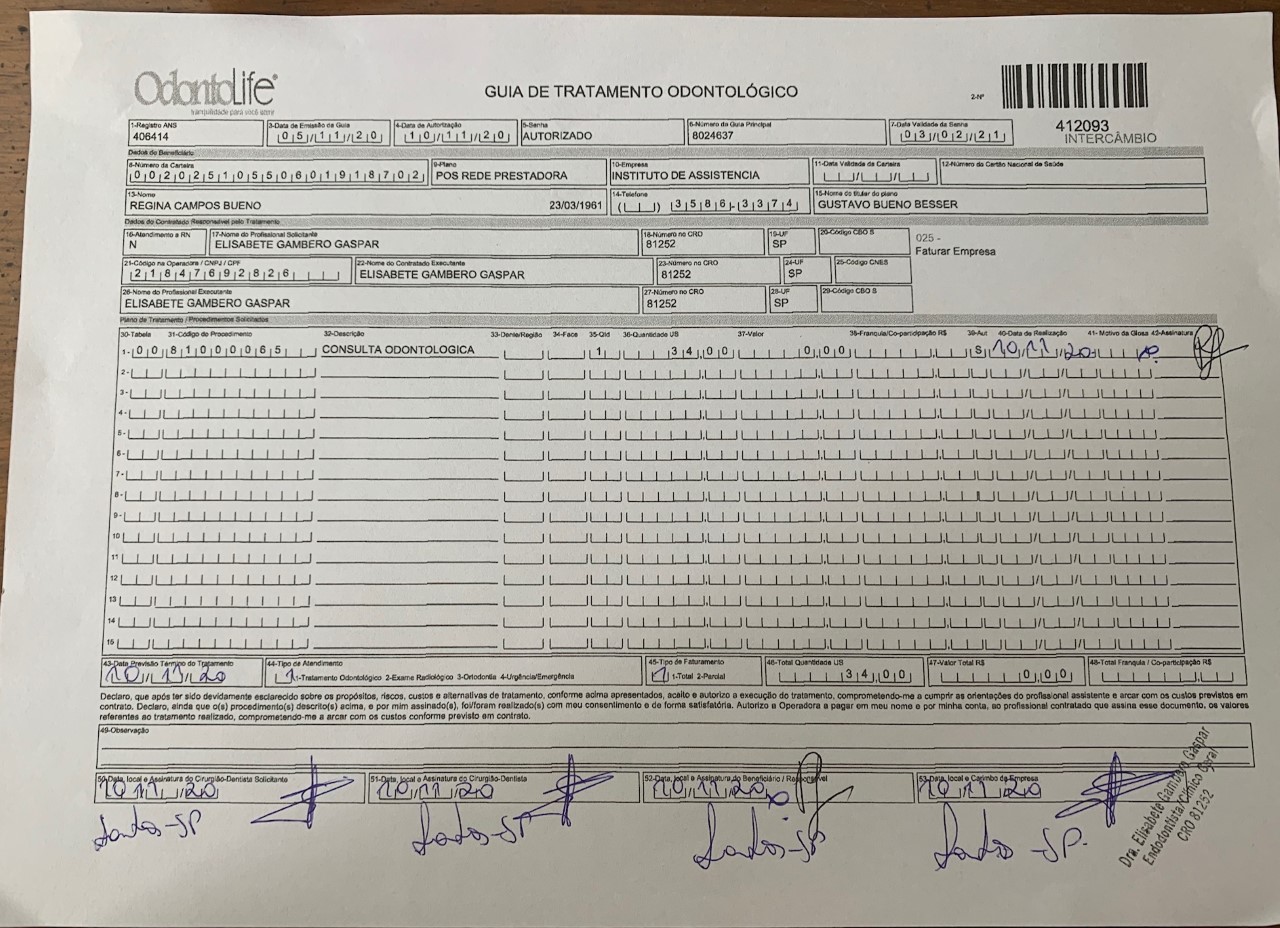 OdontoLife
tranquilidade para você sorrir
GUIA DE TRATAMENTO ODONTOLÓGICO
2-Nº
412093
INTERCÂMBIO
1-Registro ANS 3-Data de Emissão da Guia 4-Data de Autorização 5-Senha 6-Número da Guia Principal 7-Data Validade da Senha
406414 05/11/20 10/11/20 AUTORIZADO 8024637 03/02/21
Dados do Beneficiário
8-Número da Carteira 9-Plano 10-Empresa 11-Data Validade da Carteira 12-Número do Cartão Nacional de Saúde
00202510550601918702 POS REDE PRESTADORA INSTITUTO DE ASSISTENCIA
13-Nome 14-Telefone 15-Nome do titular do plano
REGINA CAMPOS BUENO 23/03/1961 ( ) 3586-3374 GUSTAVO BUENO BESSER
Dados do Contratado Responsável pelo Tratamento
16-Atendimento a RN 17-Nome do Profissional Solicitante 18-Número no CRO 19-UF 20-Código CBO S
N ELISABETE GAMBERO GASPAR 81252 SP
025 -
Faturar Empresa
21-Código na Operadora / CNPJ / CPF 22-Nome do Contratado Executante 23-Número no CRO 24-UF 25-Código CNES
21847692826 ELISABETE GAMBERO GASPAR 81252 SP
26-Nome do Profissional Executante 27-Número no CRO 28-UF 29-Código CBO S
ELISABETE GAMBERO GASPAR 81252 SP
Plano de Tratamento / Procedimentos Solicitados
30-Tabela 31-Código do Procedimento 32-Descrição 33-Dente/Região 34-Face 35-Qtd 36-Quantidade US 37-Valor 38-Franquia/Co-participação R$ 39-Aut 40-Data de Realização 41- Motivo da Glosa 42-Assinatura
1- 00 81000065 CONSULTA ODONTOLOGICA 1 34,00 0,00 S 10/11/20
2-
3-
4-
5-
6-
7-
8-
9-
10
11
12
13
14
15
43-Data Previsão Término do Tratamento 44-Tipo de Atendimento 45-Tipo de Faturamento 46-Total Quantidade US 47-Valor Total R$ 48-Total Franquia / Co-participação R$
10/11/20 1 1-Tratamento Odontológico 2-Exame Radiológico 3-Ortodontia 4-Urgência/Emergência 1 1-Total 2-Parcial 34,00 0,00
Declaro, que após ter sido devidamente esclarecido sobre os propósitos, riscos, custos e alternativas de tratamento, conforme acima apresentados, aceito e autorizo a execução do tratamento, comprometendo-me a cumprir as orientações do profissional assistente e arcar com os custos previstos em
contrato. Declaro, ainda que o(s) procedimento(s) descrito(s) acima, e por mim assinado(s), foi/foram realizado(s) com meu consentimento e de forma satisfatória. Autorizo a Operadora a pagar em meu nome e por minha conta, ao profissional contratado que assina esse documento, os valores
referentes ao tratamento realizado, comprometendo-me a arcar com os custos conforme previsto em contrato.
49-Observação
50-Data, local e Assinatura do Cirurgião-Dentista Solicitante 51-Data, local e Assinatura do Cirurgião-Dentista 52-Data, local e Assinatura do Beneficiário / Responsável 53-Data, local e Carimbo da Empresa
10/11/20 10/11/20 10/11/20 10/11/20
Santos-SP Santos-SP Santos-SP Santos-SP.
Dra. Elisabete Gambero Gaspar
Endodontista/Clínico Geral
CRO 81252